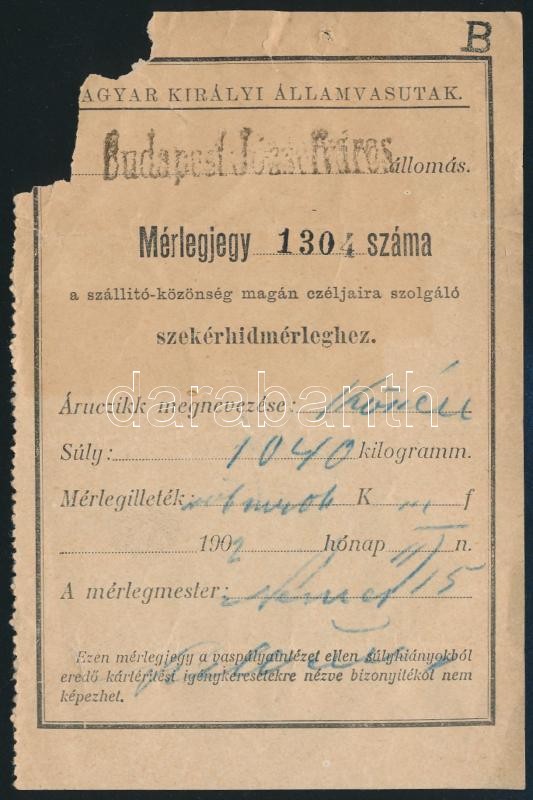 B
AGYAR KIRÁLYI ÁLLAMVASUTAK.
Budapest-Józsefváros állomás.
Mérlegjegy 1304 száma
a szállitó-közönség magán czéljaira szolgáló
szekérhidmérleghez.
darabanth.com
Áruczikk megnevezése:
Súly: 1040 kilogramm.
Mérlegilleték: K f
1902 hónap III/15 n.
A mérlegmester:
Ezen mérlegjegy a vaspályaintézet ellen súlyhiányokból
eredő kártérítési igénykeresetekre nézve bizonyitékól nem
képezhet.